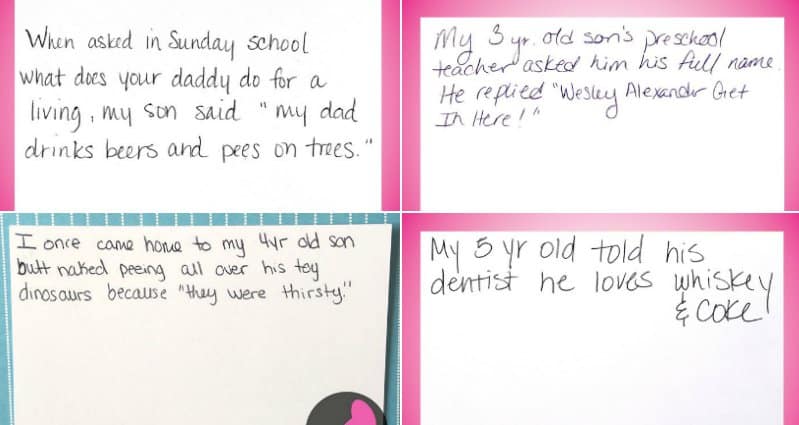 When asked in Sunday School
what does your daddy do for a
living, my son said "my dad
drinks beers and pees on trees."
My 3 yr. old son's preschool
teacher asked him his full name.
He replied "Wesley Alexander Get
In Here!"
I once came home to my 4yr old son
butt naked peeing all over his toy
dinosaurs because "they were thirsty."
My 5 yr old told his
dentist he loves whiskey
& coke